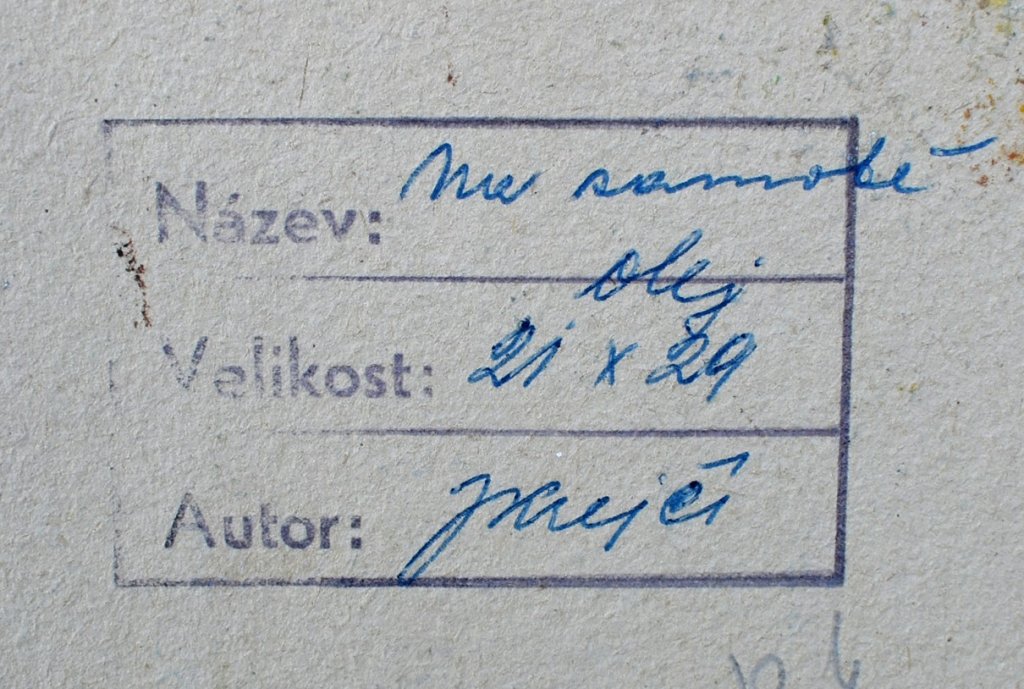 Název: Na samotě
olej
Velikost: 21 x 29
Autor: JKrejčí